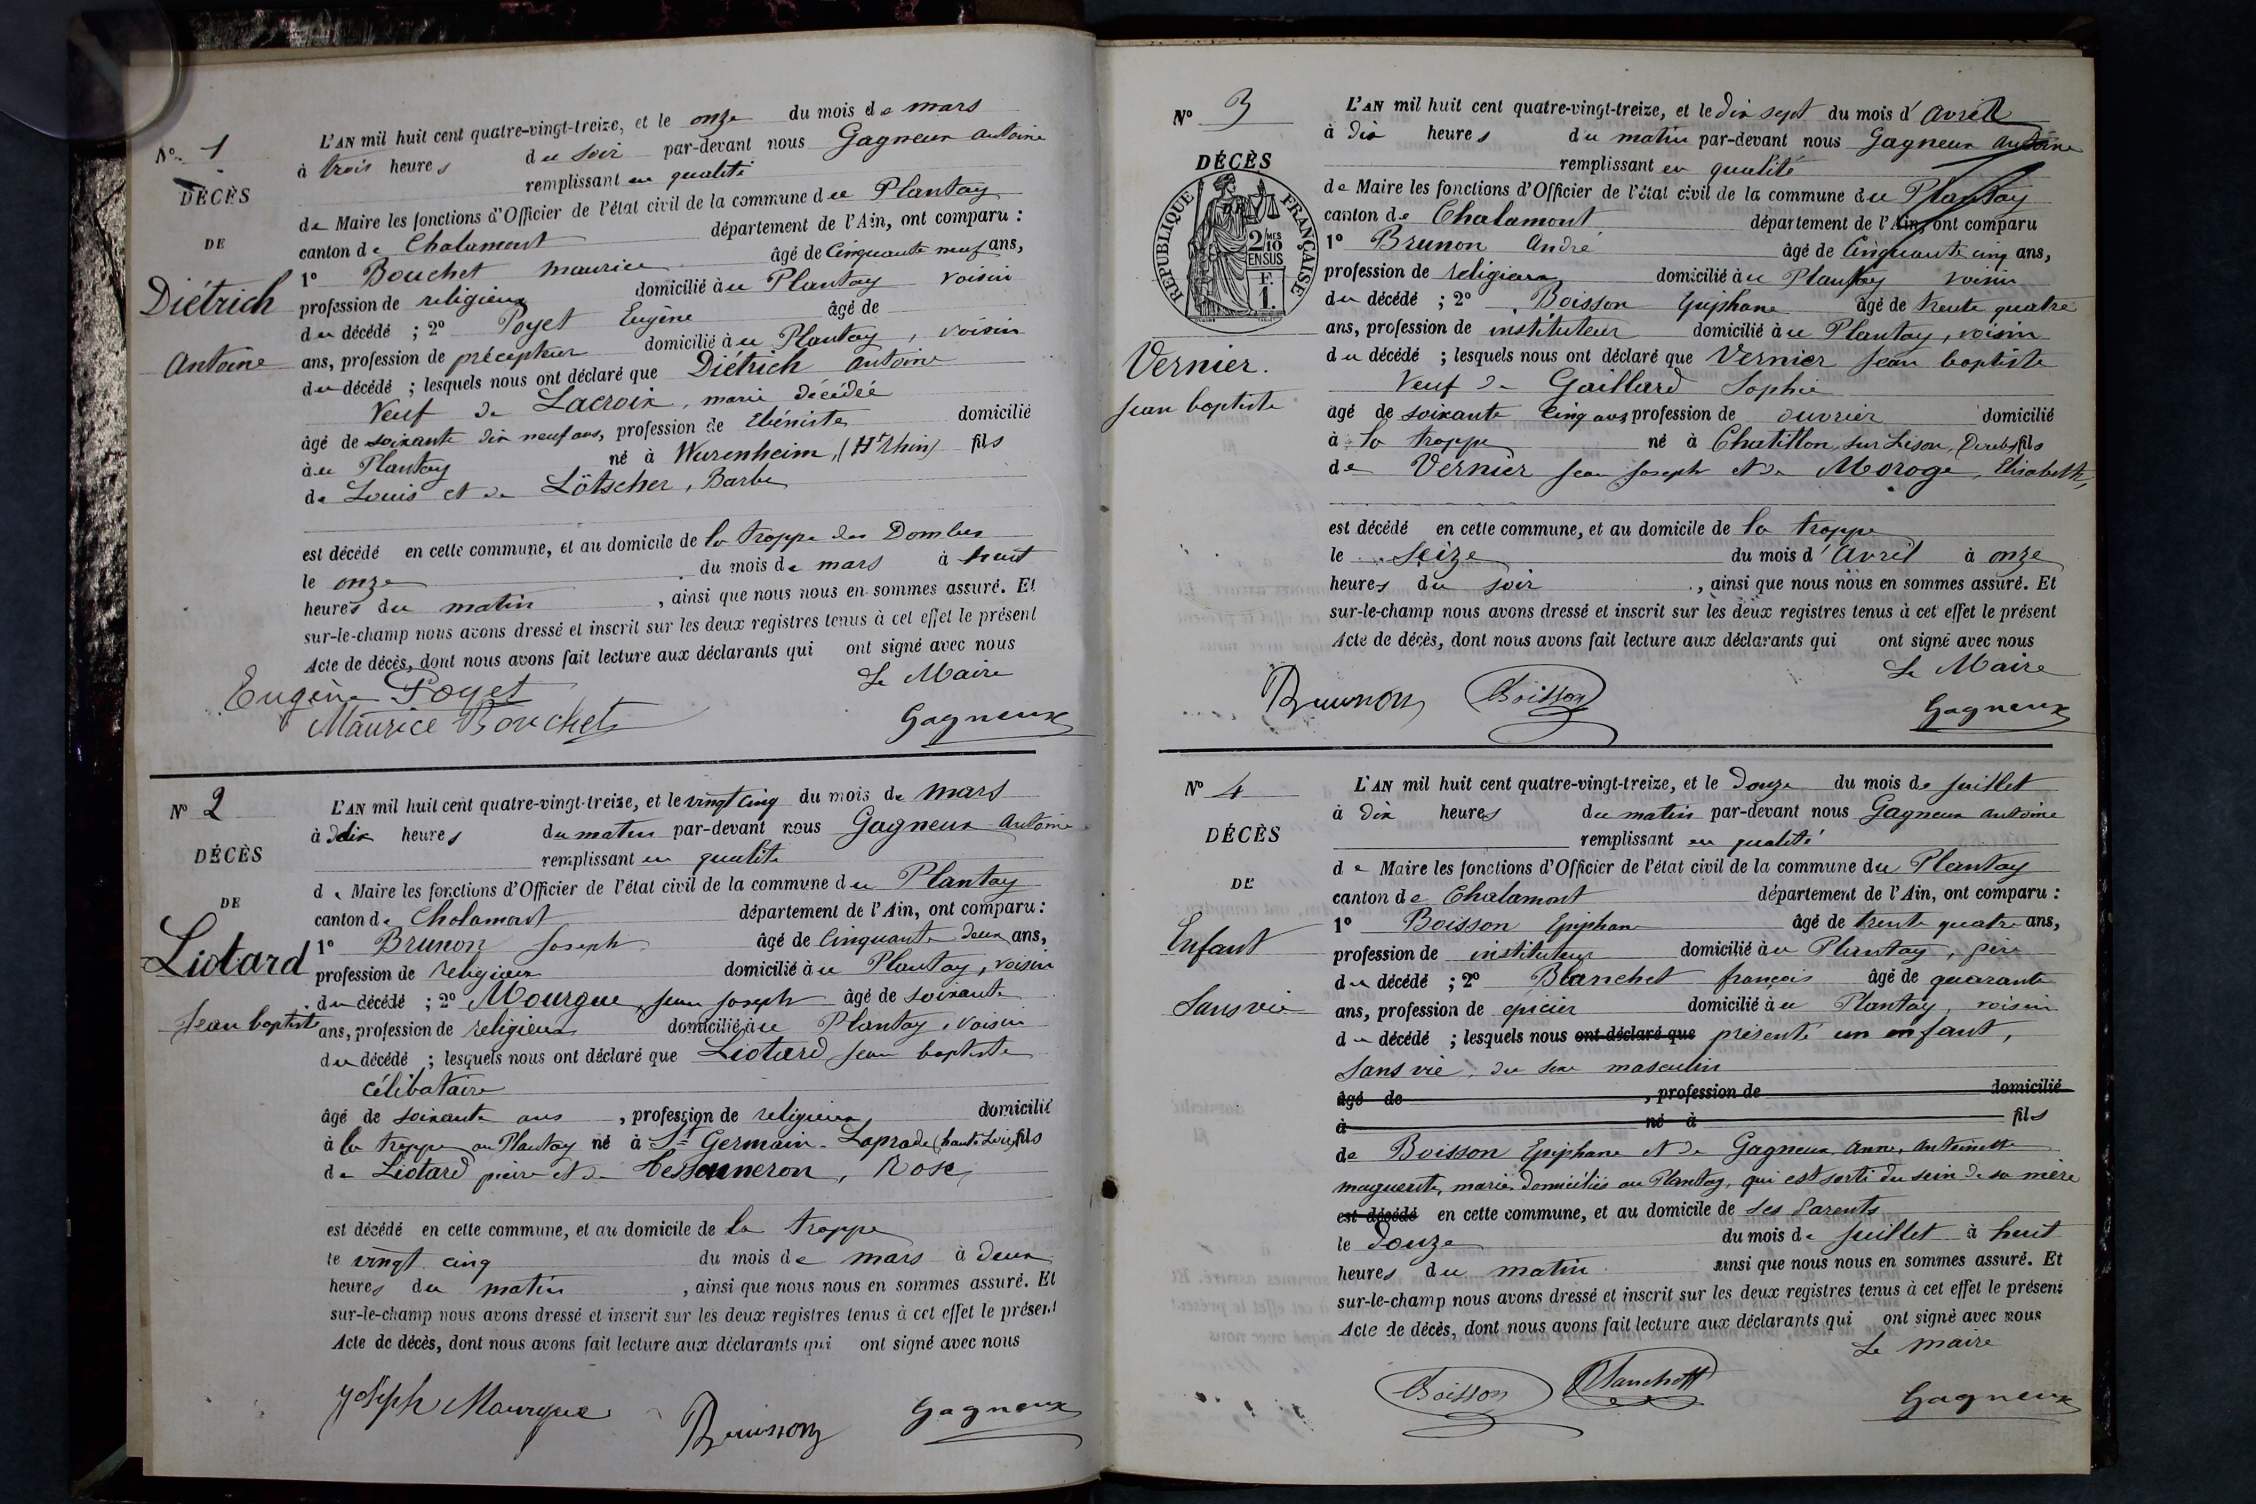 N° 1
DÉCÈS
DE
Diétrich
Antoine
L'AN mil huit cent quatre-vingt-treize, et le onze du mois de mars
à trois heures du soir par-devant nous Gagneux Antoine
remplissant en qualité
de Maire les fonctions d'Officier de l'état civil de la commune du Plantay
canton de Chalamont département de l'Ain, ont comparu :
1° Bouchet Maurice âgé de Cinquante neuf ans,
profession de religieux domicilié au Plantay voisin
du décédé ; 2° Poyet Eugène âgé de
ans, profession de précepteur domicilié au Plantay, voisin
du décédé ; lesquels nous ont déclaré que Diétrich Antoine
Veuf de Lacroix, marie décédée
âgé de soixante dix neuf ans, profession de Ebéniste domicilié
au Plantay né à Wurenheim, (Ht Rhin) fils
de Louis et de Lötscher, Barbe
est décédé en cette commune, et au domicile de la trappe des Dombes
le onze du mois de mars à huit
heures du matin, ainsi que nous nous en sommes assuré. Et
sur-le-champ nous avons dressé et inscrit sur les deux registres tenus à cet effet le présent
Acte de décès, dont nous avons fait lecture aux déclarants qui ont signé avec nous
Le Maire
Eugène Poyet
Maurice Bouchet
Gagneux
N° 2
DÉCÈS
DE
Liotard
Jean baptiste
L'AN mil huit cent quatre-vingt-treize, et le vingt cinq du mois de mars
à dix heures du matin par-devant nous Gagneux Antoine
remplissant en qualité
de Maire les fonctions d'Officier de l'état civil de la commune du Plantay
canton de Chalamont département de l'Ain, ont comparu :
1° Brunon Joseph âgé de Cinquante deux ans,
profession de religieux domicilié au Plantay, voisin
du décédé ; 2° Mourgue, Jean Joseph âgé de soixante
ans, profession de religieux domicilié au Plantay, voisin
du décédé ; lesquels nous ont déclaré que Liotard Jean baptiste
célibataire
âgé de soixante ans, profession de religieux domicilié
à la trappe au Plantay né à St Germain-Laprade (haute Loire) fils
de Liotard pierre et de Rose
est décédé en cette commune, et au domicile de la trappe
le vingt cinq du mois de mars à deux
heures du matin, ainsi que nous nous en sommes assuré. Et
sur-le-champ nous avons dressé et inscrit sur les deux registres tenus à cet effet le présent
Acte de décès, dont nous avons fait lecture aux déclarants qui ont signé avec nous
Joseph Mourgue
Brunon
Gagneux
N° 3
DÉCÈS
RÉPUBLIQUE FRANÇAISE
2/10 MES
EN SUS
F.
1.
Vernier.
Jean baptiste
L'AN mil huit cent quatre-vingt-treize, et le dix sept du mois d'avril
à dix heures du matin par-devant nous Gagneux Antoine
remplissant en qualité
de Maire les fonctions d'Officier de l'état civil de la commune du Plantay
canton de Chalamont département de l'Ain, ont comparu
1° Brunon André âgé de Cinquante cinq ans,
profession de religieux domicilié au Plantay voisin
du décédé ; 2° Boisson Epiphane âgé de trente quatre
ans, profession de instituteur domicilié au Plantay, voisin
du décédé ; lesquels nous ont déclaré que Vernier Jean baptiste
Veuf de Gaillard Sophie
âgé de soixante cinq ans, profession de ouvrier domicilié
à la trappe né à Chatillon sur Lison, (Doubs) fils
de Vernier Jean Joseph et de Moroge, Elisabeth,
est décédé en cette commune, et au domicile de la trappe
le seize du mois d'avril à onze
heures du soir, ainsi que nous nous en sommes assuré. Et
sur-le-champ nous avons dressé et inscrit sur les deux registres tenus à cet effet le présent
Acte de décès, dont nous avons fait lecture aux déclarants qui ont signé avec nous
Le Maire
Brunon
Boisson
Gagneux
N° 4
DÉCÈS
DE
Enfant
Sans vie
L'AN mil huit cent quatre-vingt-treize, et le douze du mois de juillet
à dix heures du matin par-devant nous Gagneux Antoine
remplissant en qualité
de Maire les fonctions d'Officier de l'état civil de la commune du Plantay
canton de Chalamont département de l'Ain, ont comparu :
1° Boisson Epiphane âgé de trente quatre ans,
profession de instituteur domicilié au Plantay, père
du décédé ; 2° Blanchet françois âgé de quarante
ans, profession de epicier domicilié au Plantay, voisin
du décédé ; lesquels nous ont déclaré que présenté un enfant,
sans vie, du sexe masculin
âgé de , profession de domicilié
à né à fils
de Boisson Epiphane et de Gagneux Anne, Antoinette
marguerite, mariés domiciliés au Plantay, qui est sorti du sein de sa mère
est décédé en cette commune, et au domicile de ses Parents
le douze du mois de juillet à huit
heures du matin ainsi que nous nous en sommes assuré. Et
sur-le-champ nous avons dressé et inscrit sur les deux registres tenus à cet effet le présent
Acte de décès, dont nous avons fait lecture aux déclarants qui ont signé avec nous
Le maire
Boisson
Blanchet
Gagneux